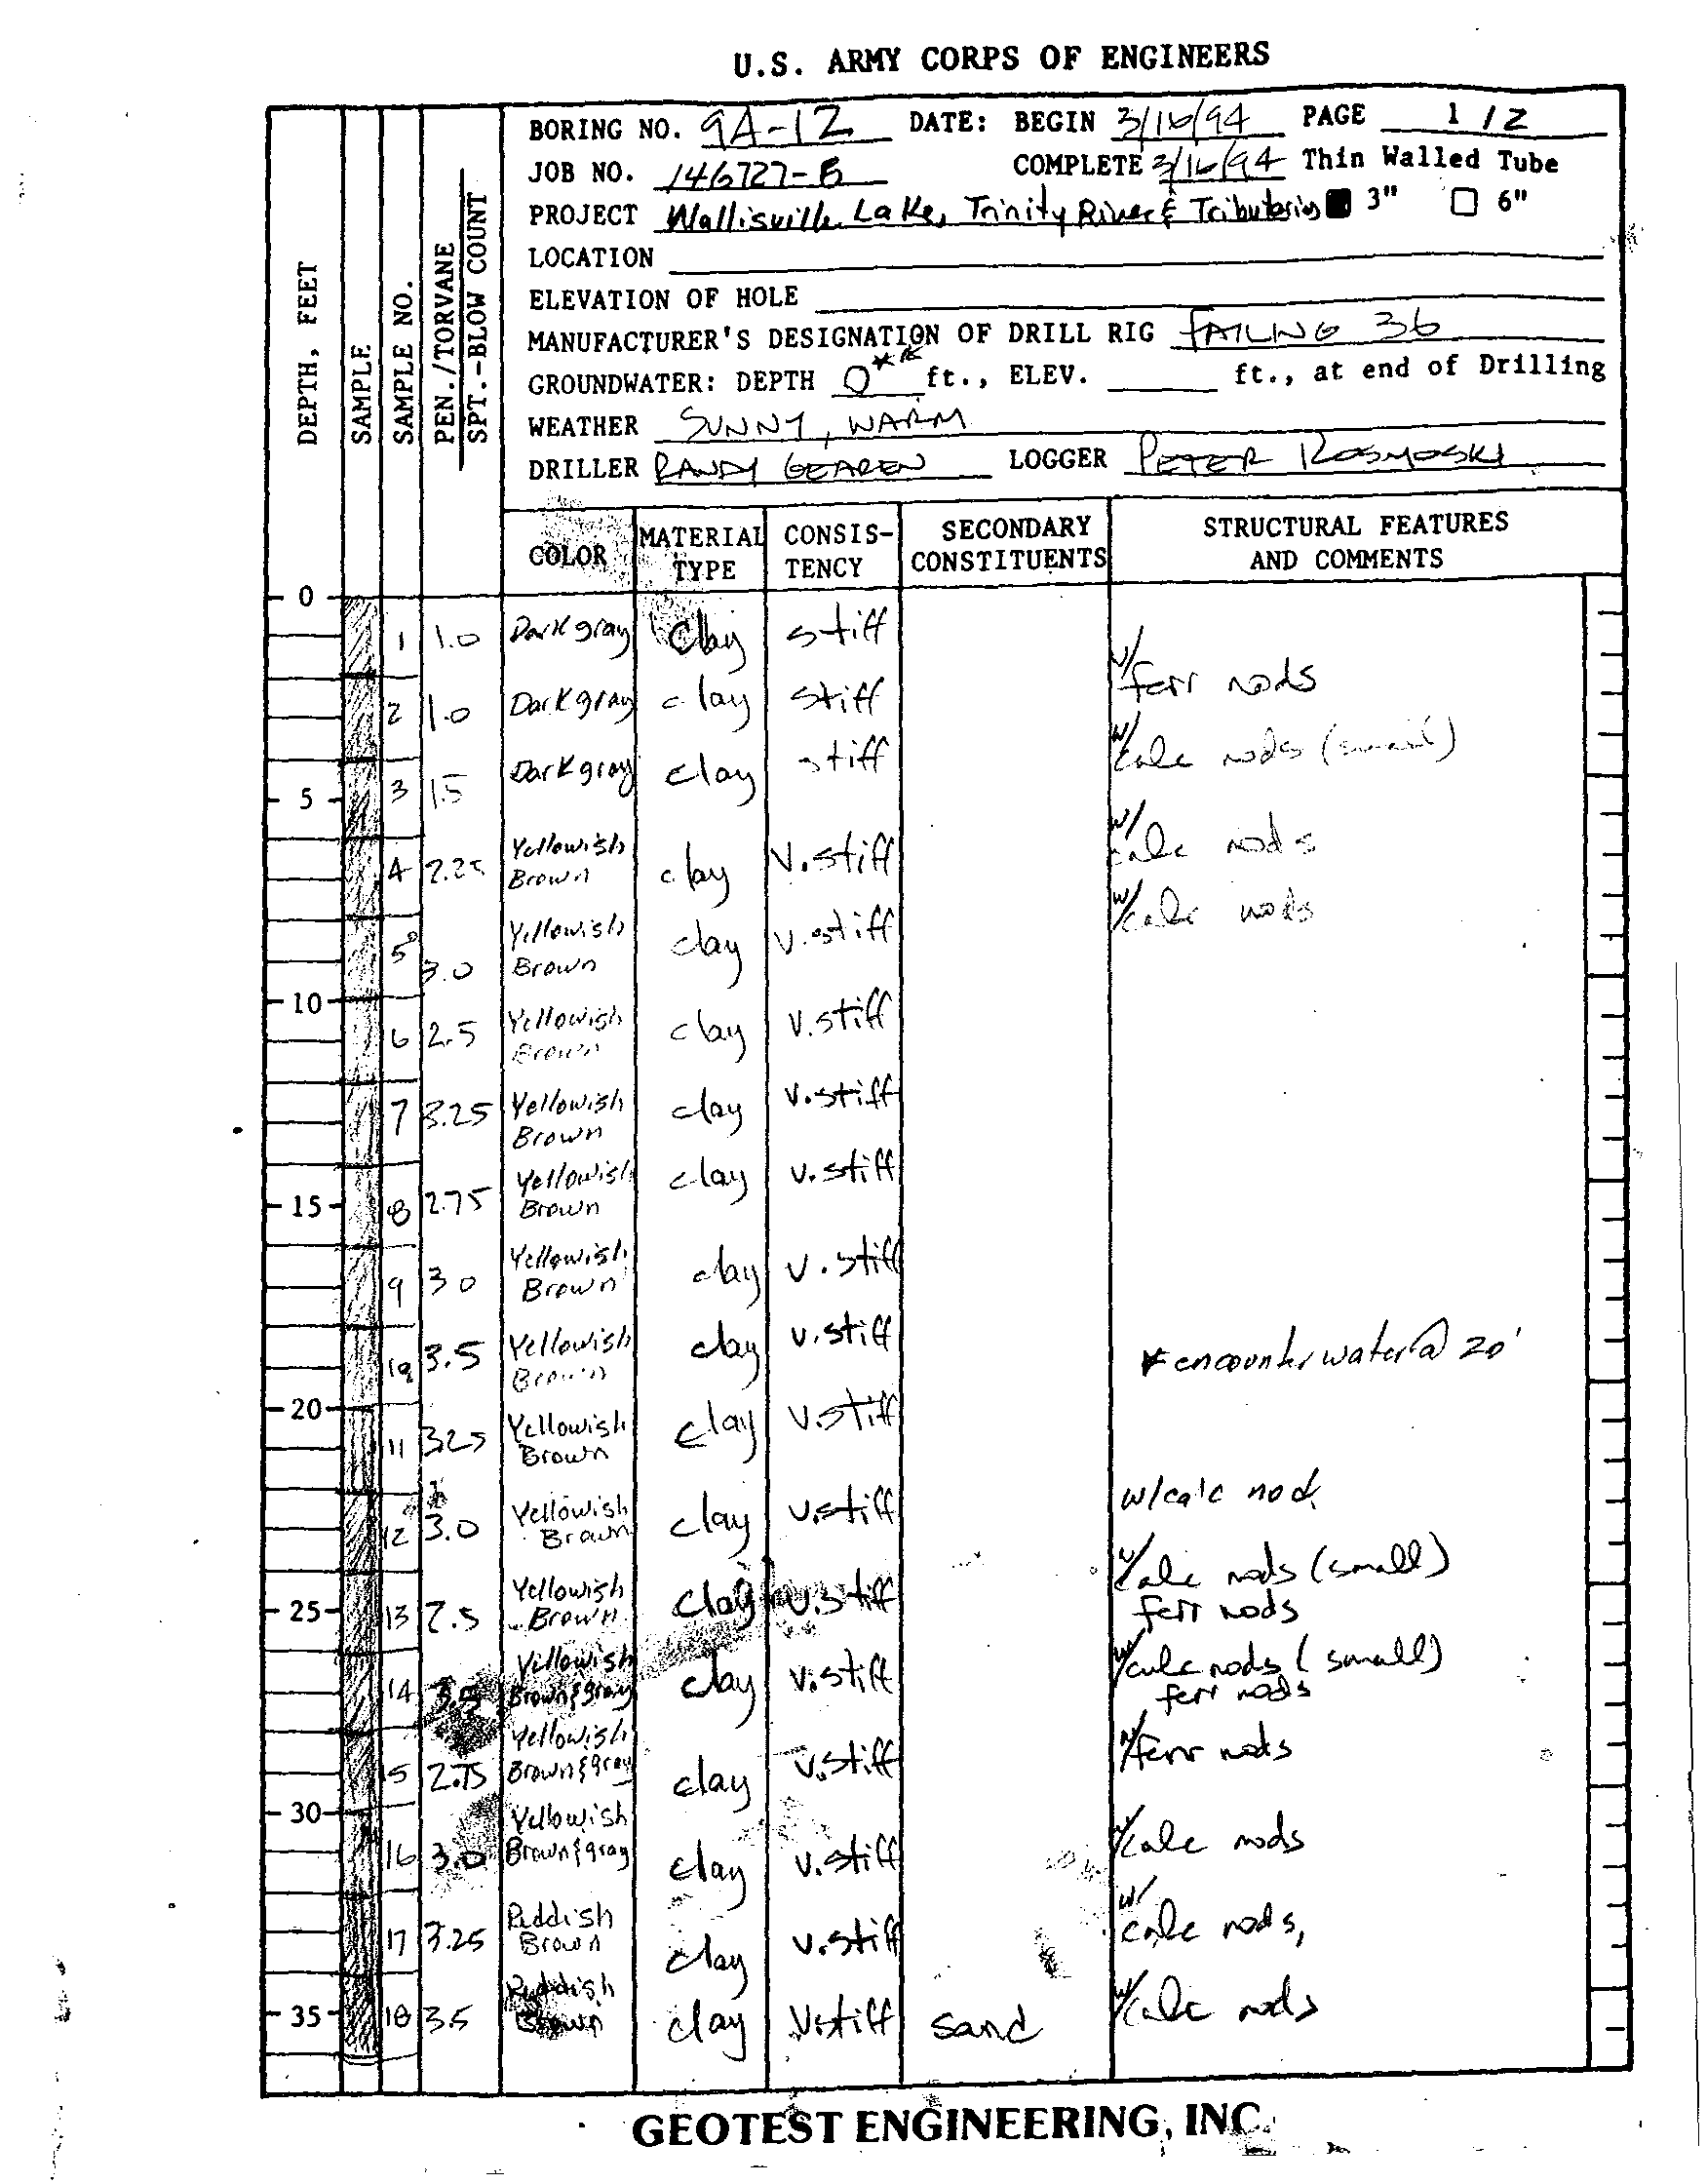 U.S. ARMY CORPS OF ENGINEERS
BORING NO. 94-12 DATE: BEGIN 3/16/94 PAGE 1 / 2
JOB NO. 146727-E COMPLETE 3/16/94 Thin Walled Tube
PROJECT Wallisville Lake, Trinity River & Tributaries ■ 3" □ 6"
LOCATION
ELEVATION OF HOLE
MANUFACTURER'S DESIGNATION OF DRILL RIG FAILING 36
GROUNDWATER: DEPTH 0** ft., ELEV. ft., at end of Drilling
WEATHER SUNNY, WARM
DRILLER RANDY GEAREN LOGGER PETER
DEPTH, FEET
SAMPLE
SAMPLE NO.
PEN./TORVANE
SPT.-BLOW COUNT
COLOR MATERIAL TYPE CONSIS-TENCY SECONDARY CONSTITUENTS STRUCTURAL FEATURES AND COMMENTS
0
1 1.0 Dark gray Clay stiff
w/ ferr nods
2 1.0 Dark gray clay stiff
w/ calc nods (small)
5 3 1.5 Dark gray clay stiff
w/ calc nods
4 2.25 Yellowish Brown clay V.stiff
w/calc nods
5 3.0 Yellowish Brown clay V.stiff
10
6 2.5 Yellowish Brown clay V.stiff
7 3.25 Yellowish Brown clay V.stiff
15 8 2.75 Yellowish Brown clay V.stiff
9 3.0 Yellowish Brown clay V.stiff
10 3.5 Yellowish Brown clay V.stiff * encounter water @ 20'
20
11 3.25 Yellowish Brown clay V.stiff
12 3.0 Yellowish Brown clay V.stiff w/calc nod
25 13 2.5 Yellowish Brown clay V.stiff w/calc nods (small) ferr nods
14 3.5 Yellowish Brown & gray clay V.stiff w/calc nods (small) ferr nods
15 2.75 Yellowish Brown & gray clay V.stiff w/ferr nods
30
16 3.0 Yellowish Brown & gray clay V.stiff w/calc nods
17 3.25 Reddish Brown clay V.stiff w/ calc nods,
35 18 3.5 Reddish Brown clay V.stiff sand w/calc nods
GEOTEST ENGINEERING, INC.